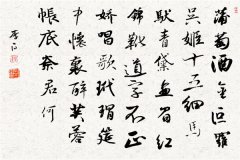 蒲萄酒金叵羅
吳姬十五細馬
馱青黛畫眉紅
錦靴道字不正
嬌唱歌玳瑁筵
中懷裏醉芙蓉
帳底奈君何